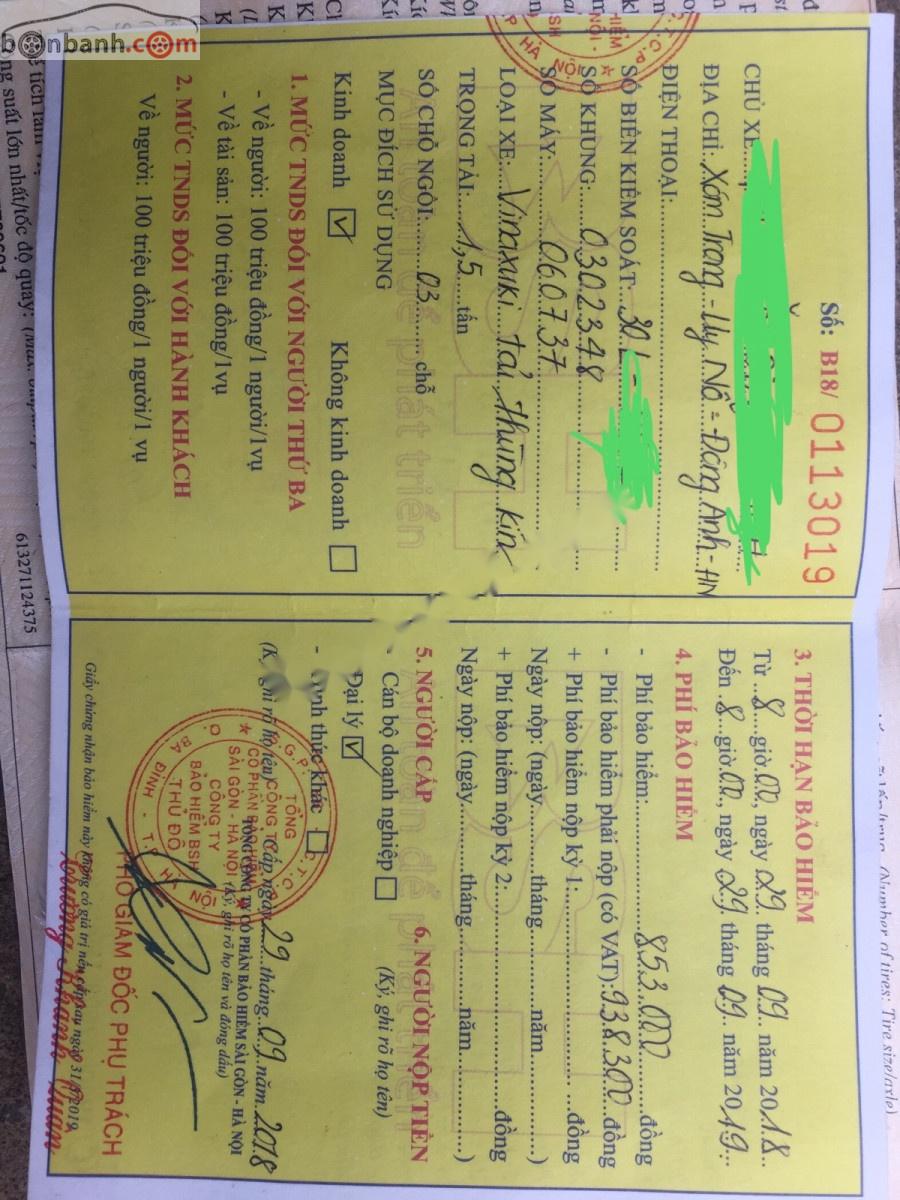 bonbanh.com
Số: B18/ 0113019
CHỦ XE:
ĐỊA CHỈ: Xóm Trong - Uy Nỗ - Đông Anh - HN
ĐIỆN THOẠI:
SỐ BIỂN KIỂM SOÁT: 30L
SỐ KHUNG: 0302348
SỐ MÁY: 060737
LOẠI XE: Vinaxuki tải thùng kín
TRỌNG TẢI: 1,5 tấn
SỐ CHỖ NGỒI: 03 chỗ
MỤC ĐÍCH SỬ DỤNG
Kinh doanh ☑ Không kinh doanh ☐
1. MỨC TNDS ĐỐI VỚI NGƯỜI THỨ BA
- Về người: 100 triệu đồng/1 người/1vụ
- Về tài sản: 100 triệu đồng/1vụ
2. MỨC TNDS ĐỐI VỚI HÀNH KHÁCH
Về người: 100 triệu đồng/1 người/1 vụ
3. THỜI HẠN BẢO HIỂM
Từ 8 giờ 00, ngày 29 tháng 09 năm 2018
Đến 8 giờ 00, ngày 29 tháng 09 năm 2019
4. PHÍ BẢO HIỂM
- Phí bảo hiểm: 853.000 đồng
- Phí bảo hiểm phải nộp (có VAT): 938.300 đồng
+ Phí bảo hiểm nộp kỳ 1: đồng
Ngày nộp: (ngày tháng năm )
+ Phí bảo hiểm nộp kỳ 2: đồng
Ngày nộp: (ngày tháng năm )
5. NGƯỜI CẤP 6. NGƯỜI NỘP TIỀN
- Cán bộ doanh nghiệp ☐ (Ký, ghi rõ họ tên)
Đại lý ☑
- thức khác ☐
ghi rõ họ tên) Cấp ngày 29 tháng 09 năm 2018
TỔNG CÔNG TY CỔ PHẦN BẢO HIỂM SÀI GÒN - HÀ NỘI
(Ký, ghi rõ họ tên và đóng dấu)
TỔNG
CÔNG TY
CỔ PHẦN BẢO HIỂM
SÀI GÒN - HÀ NỘI
CÔNG TY
BẢO HIỂM BSH
THỦ ĐÔ
PHÓ GIÁM ĐỐC PHỤ TRÁCH
Giấy chứng nhận bảo hiểm này không có giá trị nếu cấp sau ngày 31/ /2019
An toàn để phát triển
An toàn để phát triển
613271124375
(Number of tires: Tire size/axle)
suất lớn nhất/tốc độ quay: